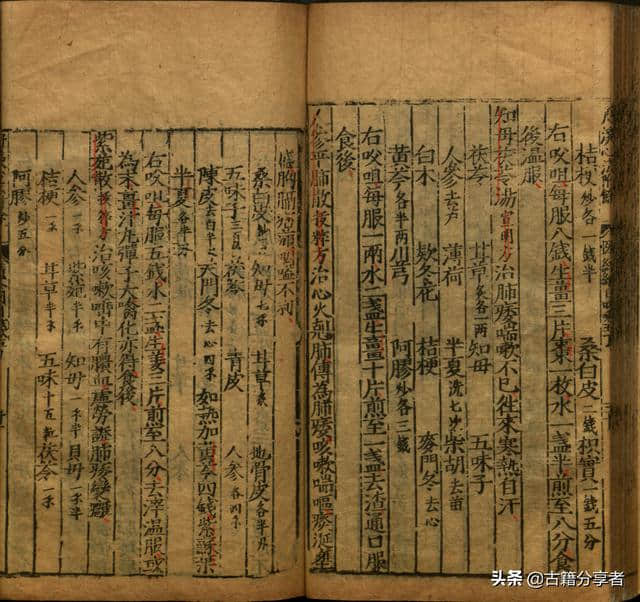 桔梗炒各一錢半 桑白皮二錢枳實一錢五分
右㕮咀每服八錢生薑三片棗一枚水一盞半煎至八分食
後溫服
知母茯苓湯宣明方治肺痿喘嗽不已徃來寒熱自汗
茯苓 甘草炙各一兩 知母 五味子
人參去蘆 薄荷 半夏洗七次柴胡去苗
白木 欵冬花 桔梗 麥門冬去心
黃芩各半兩川芎 阿膠炒各三錢
右㕮咀每服一兩水一盞生薑十片煎至一盞去渣通口服
食後
人參平肺散拔粹方治心火尅肺傳為肺痿咳嗽喘嘔痰涎壅
盛胸膈痞滿咽嗌不利
桑白皮炒一 知母七 甘草炙 地骨皮各半
五味子三百 茯苓 青皮 人參各四
陳皮去白半 天門冬去心四 如熱加黃芩四錢紫蘇葉
半夏各半
右㕮咀每服五錢水一盞生姜三片煎至八分去滓溫服或
為末薑汁丸彈子大噙化亦得食後
紫菀散拔粹方治咳嗽唾中有膿血虛勞證肺痿變癰
人參一 紫菀半 知母一 貝母一
桔梗一 甘草半 五味十五粒茯苓一
阿膠炒五分
头条 @古籍分享者